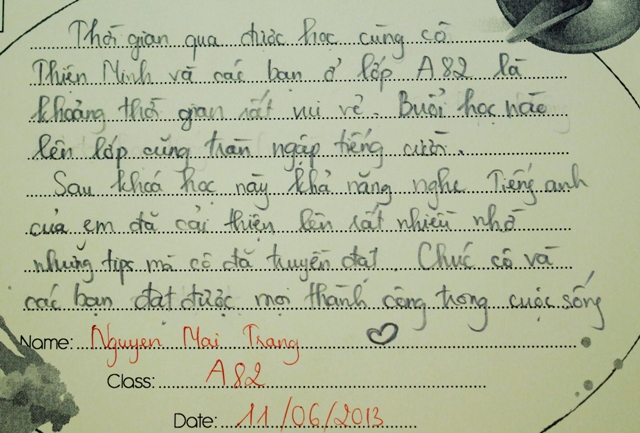 Thời gian qua được học cùng cô
Thiên Minh và các bạn ở lớp A82 là
khoảng thời gian rất vui vẻ. Buổi học nào
lên lớp cũng tràn ngập tiếng cười.
Sau khoá học này khả năng nghe Tiếng anh
của em đã cải thiện lên rất nhiều nhờ
những tips mà cô đã truyền đạt. Chúc cô và
các bạn đạt được mọi thành công trong cuộc sống
Name: Nguyen Mai Trang
Class: A82
Date: 11/06/2013